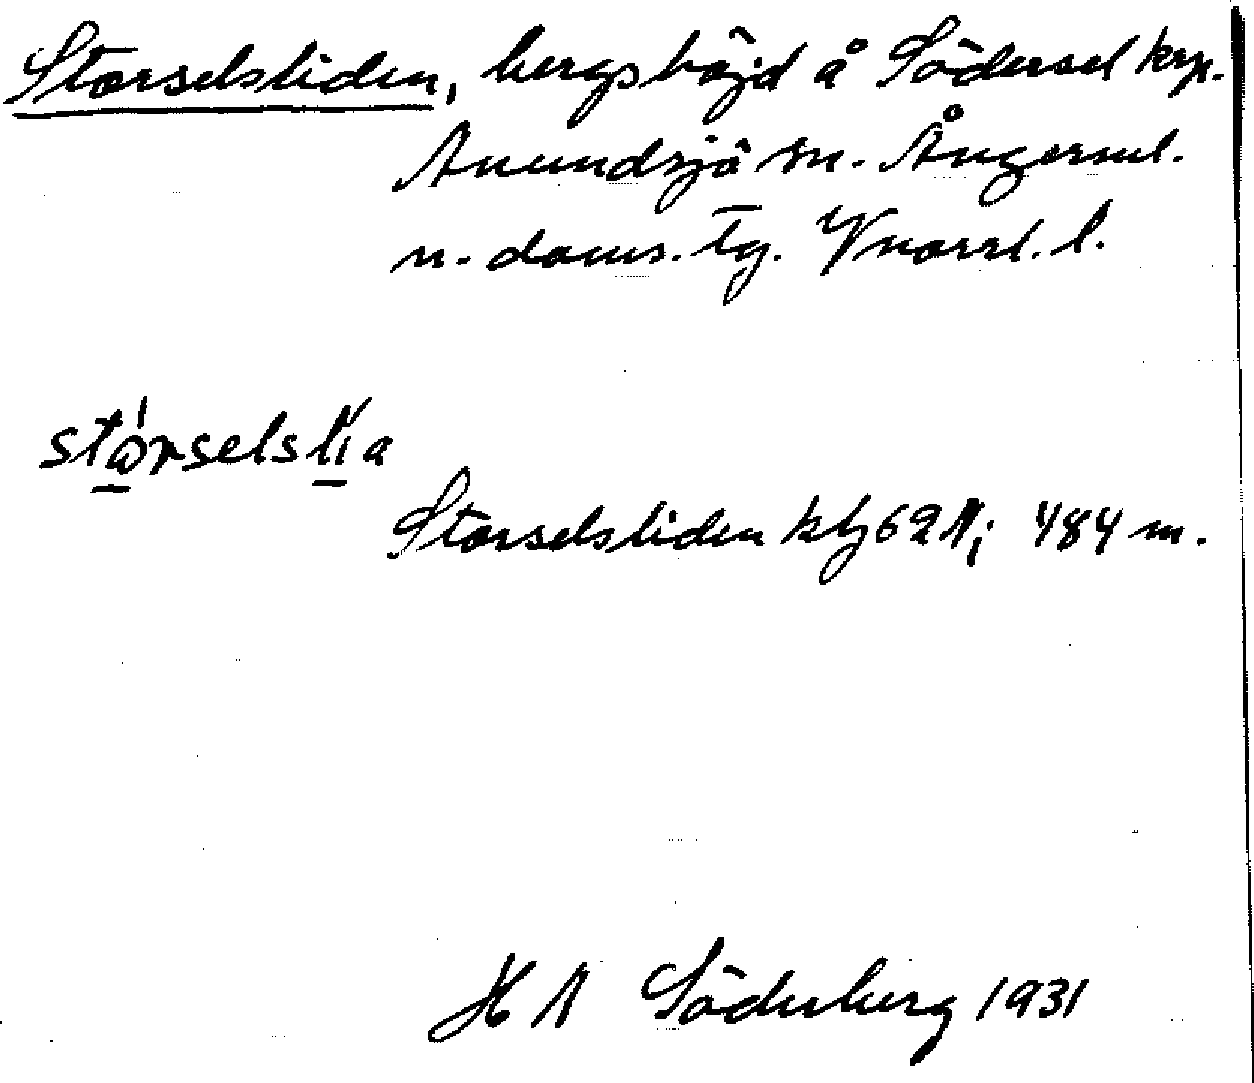 Storselsliden, bergshöjd å Södersel krp.
Anundsjö sn. Ångerml.
n. doms. Tg. Vnorrl. l.
stώ̱rselslı̱́a
Storselsliden kbl 62 N; 484 m.
H N Söderberg 1931